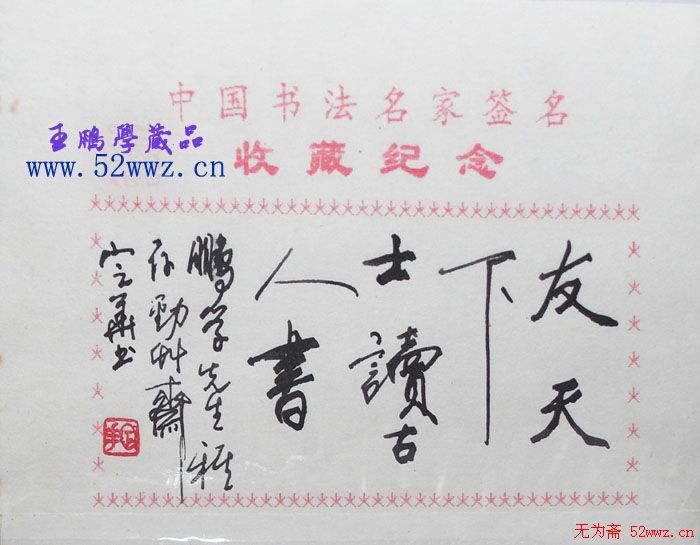 中国书法名家签名
王鹏學藏品
www.52wwz.cn
收藏纪念
友天
下
士讀古
人書
鵬學先生雅
存勁艸齋
宝華书
无为斋 52wwz.cn